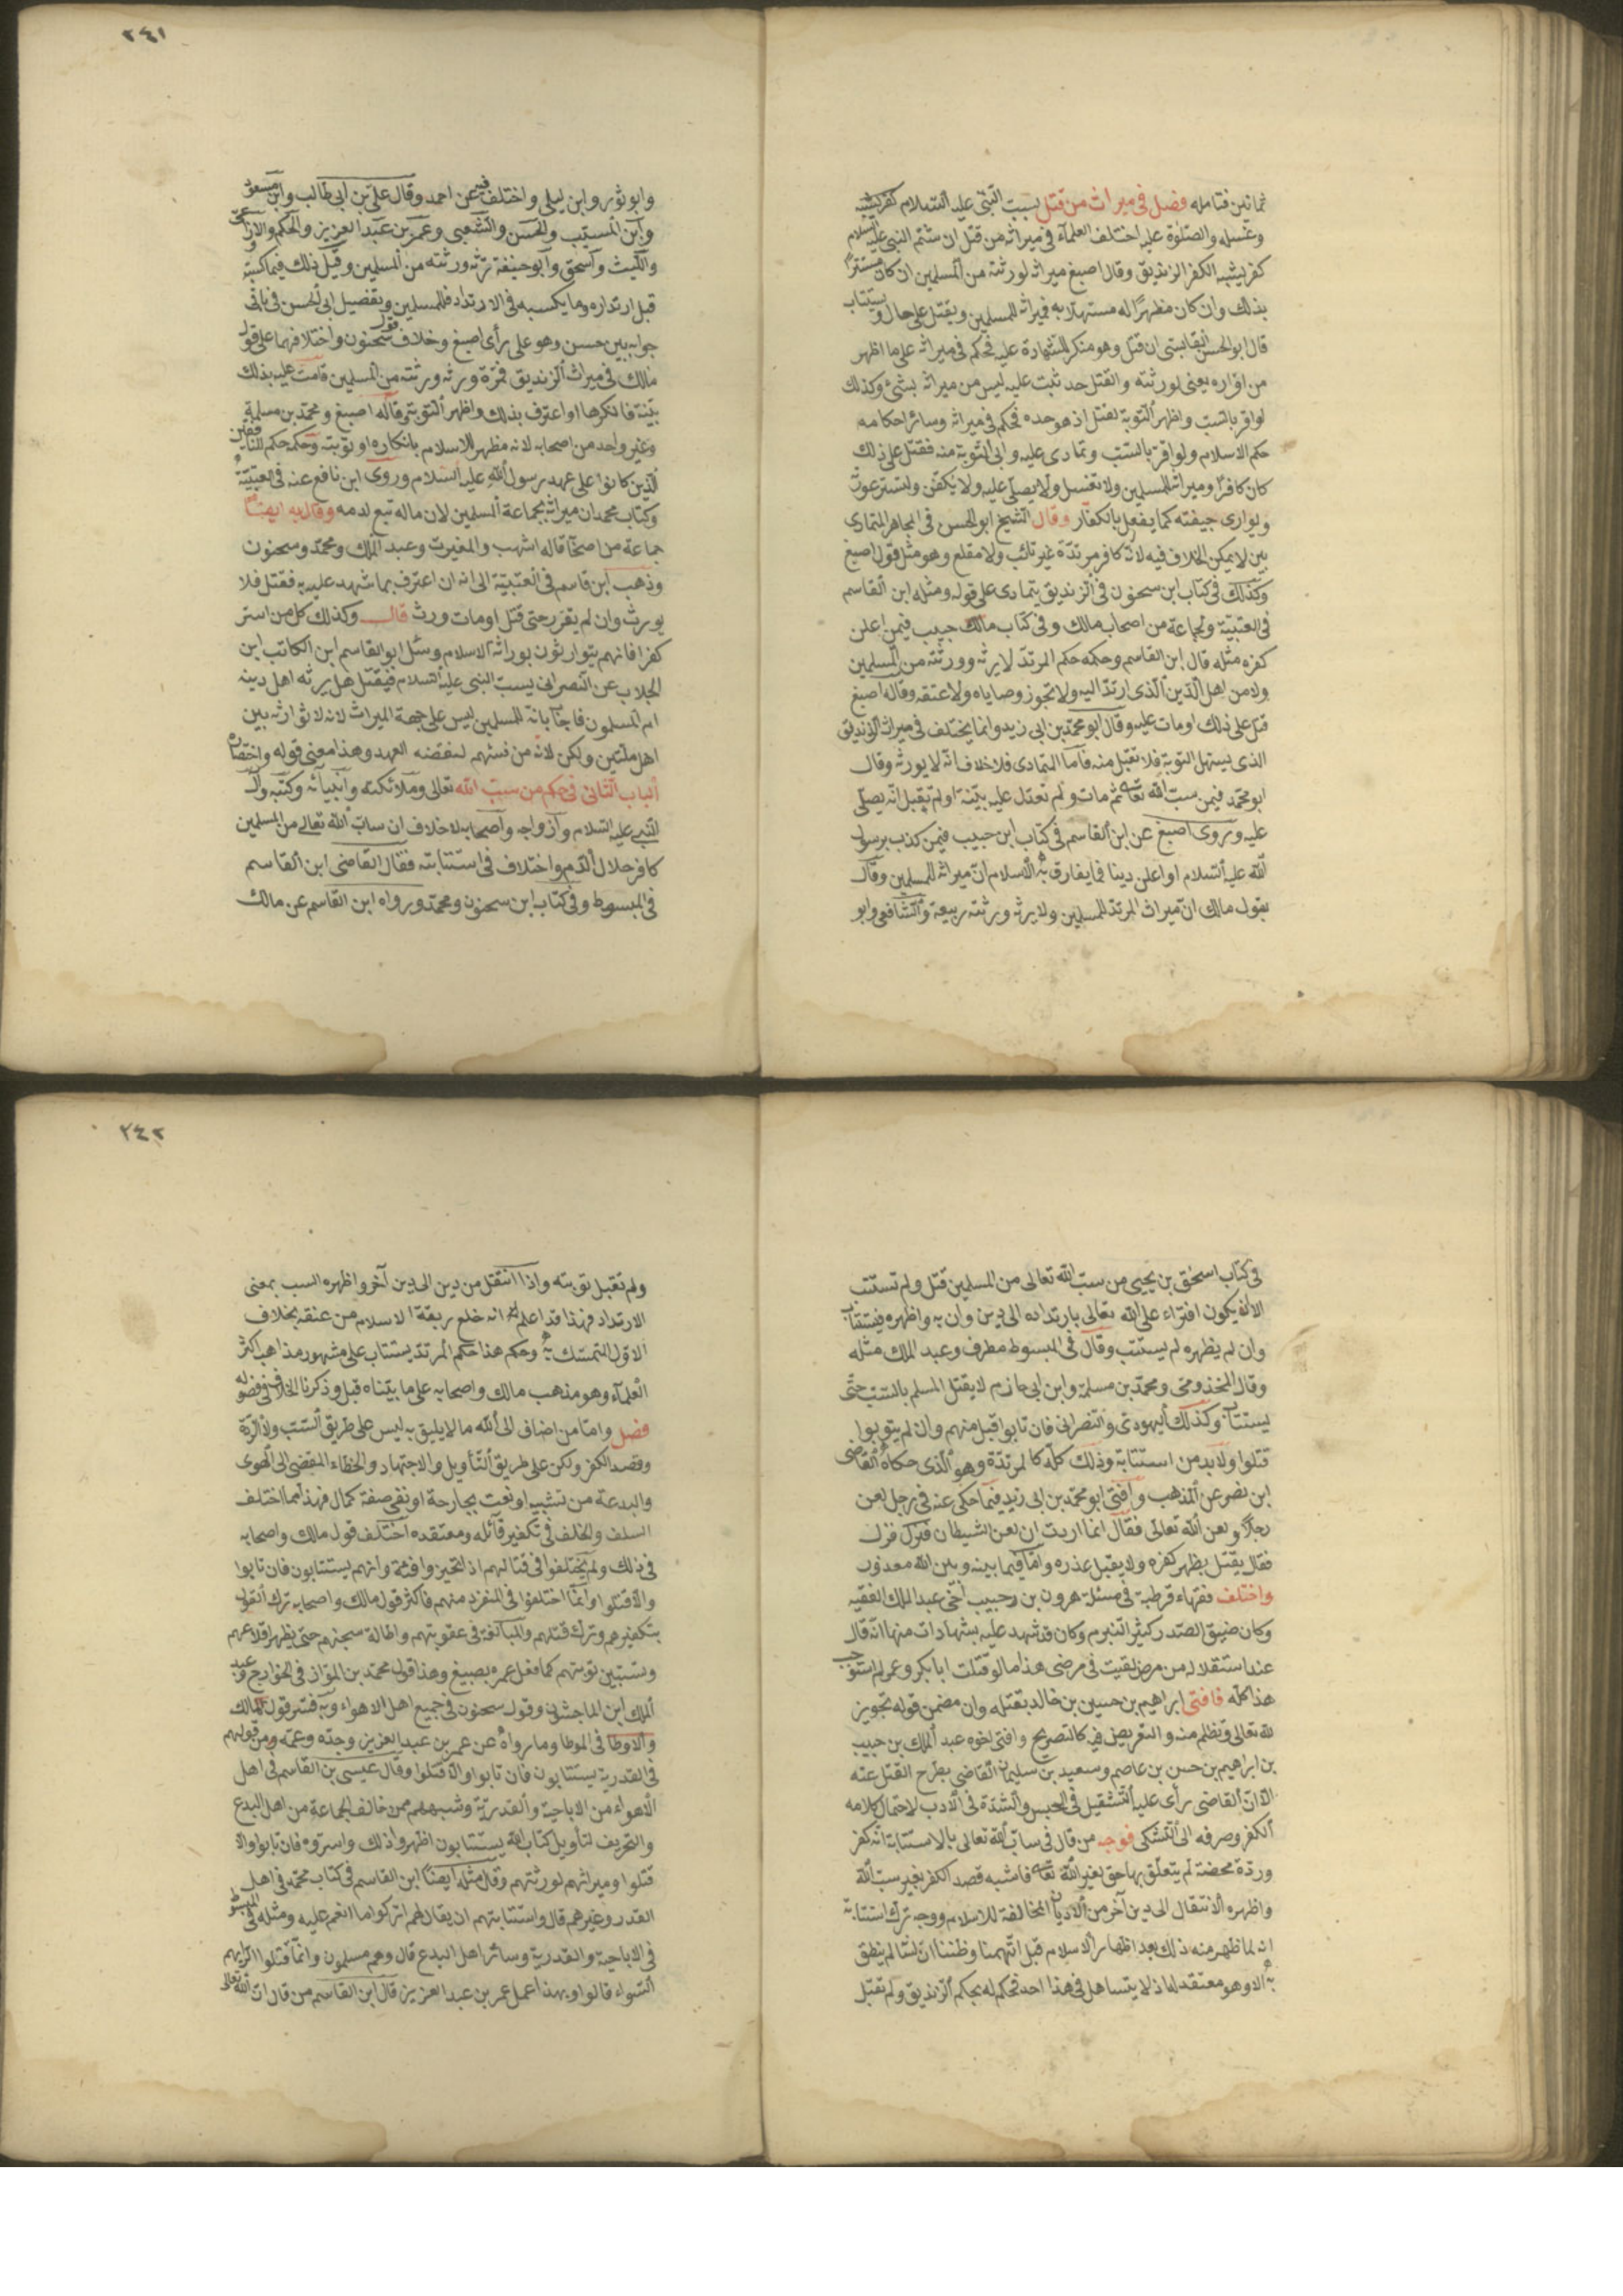 ثمانين فتامله فصل في ميراث من قتل بسبب النبي عليه السلام كفر يشبه
وغسله والصلوة عليه اختلف العلماء في ميراثه من قتل ان شتم النبي عليه السلام
كفر يشبه الكفر الزنديق وقال اصبغ ميراثه لورثته من المسلمين ان كان مستترا
بذلك وان كان مظهرا له مستهلا به فميراثه للمسلمين ويقتل على حال ويستتاب
قال ابو الحسن القابسي ان قتل وهو منكر للشهادة عليه فحكم في ميراثه على ما اظهر
من اقراره يعني لورثته والقتل حد ثبت عليه ليس من ميراثه بشئ وكذلك
لو اقر بالسب واظهر التوبة لقتل اذ هو حده فحكم في ميراثه وسائر احكامه
حكم الاسلام ولو اقر بالسب وتمادى عليه وابى التوبة منه فقتل على ذلك
كان كافرا وميراثه للمسلمين ولا يغسل ولا يصلى عليه ولا يكفن ولتستر عورته
ويوارى جيفته كما يفعل بالكفار وقال الشيخ ابو الحسن في المجاهر المتمادى
بين لا يمكن الخلاف فيه لانه كافر مرتدة غير تائب ولا مقلع وهو مثل قول اصبغ
وكذلك في كتاب ابن سحنون في الزنديق يتمادى على قوله ومثله ابن القاسم
في العتبية ولجماعة من اصحاب مالك وفي كتاب مالك حبيب فيمن اعلن
كفره مثله قال ابن القاسم وحكمه حكم المرتد لا يرثه وورثته من المسلمين
ولا من اهل الدين الذى ارتد اليه ولا تجوز وصاياه ولا عتقه وقاله اصبغ
قتل على ذلك او مات عليه وقال ابو محمد بن ابي زيد وانما يختلف في ميراث الزنديق
الذى يستهل التوبة فلا تقبل منه فاما المتمادى فلا خلاف انه لا يورثه وقال
ابو محمد فيمن سب الله تعالى ثم مات ولم تعدل عليه بينة او لم يقبل انه يصلى
عليه وروى اصبغ عن ابن القاسم في كتاب ابن حبيب فيمن كذب برسول
الله عليه السلام او اعلن دينا فما يفارق به الاسلام ان ميراثه للمسلمين وقال
بقول مالك ان ميراث المرتد للمسلمين ولا يرثه ورثته ربيعة والشافعي وابو
٢٤١
وابو ثور وابن ليلى واختلف فيه عن احمد وقال علي بن ابي طالب وابن مسعود
وابن المسيب والحسن والشعبي وعمر بن عبد العزيز والحكم والاوزاعي
والليث واسحق وابو حنيفة ترثه ورثته من المسلمين وقيل ذلك فيما كسبه
قبل ارتداده وما يكسبه في الارتداد فللمسلمين وتفصيل ابي الحسن في باقي
جوابه بين حسن وهو على رأى اصبغ وخلاف قول سحنون واختلافهما على قول
مالك في ميراث الزنديق فمرة ورثه ورثته من المسلمين قامت عليه بذلك
بينة فانكرها او اعترف بذلك واظهر التوبة وقاله اصبغ ومحمد بن مسلمة
وغير واحد من اصحابه لانه مظهر للاسلام بانكاره او توبته وحكمه حكم المنافقين
الذين كانوا على عهد رسول الله عليه السلام وروى ابن نافع عنه في العتبية و
وكتاب محمد ان ميراثه لجماعة المسلمين لان ماله تبع لدمه وقال به ايضا
جماعة من اصحابه قاله اشهب والمغيرة وعبد الملك ومحمد وسحنون
وذهب ابن قاسم في العتبية الى انه ان اعترف بما شهد عليه به فقتل فلا
يورث وان لم يقر حتى قتل او مات ورث قال وكذلك كل من استر
كفرا فانهم يتوارثون بوراثة الاسلام وسئل ابو القاسم ابن الكاتب ابن
الجلاب عن النصراني يسب النبي عليه السلام فيقتل هل يرثه اهل دينه
ام المسلمون فاجاب انه للمسلمين ليس على جهة الميراث لانه لا توارثه بين
اهل ملتين ولكن لانه من فيئهم لنقضه العهد وهذا معنى قوله واختصاره
الباب الثاني في حكم من سب الله تعالى وملائكته وانبيائه وكتبه وآل
النبي عليه السلام وازواجه واصحابه لا خلاف ان ساب الله تعالى من المسلمين
كافر حلال الدم واختلاف في استتابته فقال القاضي ابن القاسم
في المبسوط وفي كتاب ابن سحنون ومحمد ورواه ابن القاسم عن مالك
في كتاب اسحق بن يحيى من سب الله تعالى من المسلمين قتل ولم تستتب
الا انه يكون افتراء على الله تعالى بارتداده الى دين وان به واظهره فيستتاب
وان لم يظهره لم يستتب وقال في المبسوط مطرف وعبد الملك مثله
وقال المخذومي ومحمد بن مسلمة وابن ابي حازم لا يقتل المسلم بالسب حتى
يستتاب وكذلك اليهودى والنصراني فان تابوا قبل منهم وان لم يتوبوا
قتلوا ولا بد من استتابة وذلك كله كالمرتدة وهو الذى حكاه القاضي
ابن نصر عن المذهب وافتى ابو محمد بن ابي زيد فيما حكى عنه في رجل لعن
رجلا ولعن الله تعالى فقال انما اردت ان لعن الشيطان فنزل فزل
فقال يقتل بظهر كفره ولا يقبل عذره واما فيما بينه وبين الله معذور
واختلف فقهاء قرطبة في مسئلة هرون بن حبيب اخي عبد الملك الفقيه
وكان ضيق الصدر كثير التبرم وكان قد شهد عليه بشهادات منها انه قال
عند استقلاله من مرض لقيت في مرضي هذا ما لو قتلت ابا بكر وعمر لم استوجب
هذا كله فافتى ابراهيم بن حسين بن خالد بقتله وان مضمن قوله تجويز
لله تعالى وتظلم منه والتعريض فيه كالتصريح وافتى اخوه عبد الملك بن حبيب
بن ابراهيم بن حسن بن عاصم وسعيد بن سليمان القاضي بطرح القتل عنه
الا ان القاضي رأى عليه التثقيل في الحبس والشدة في الادب لاحتمال كلامه
الكفر وصرفه الى التشكي فوجه من قال في ساب الله تعالى بالاستتابة انه كفر
وردة محضة لم يتعلق بها حق لغير الله تعالى فاشبه قصد الكفر بغير سب الله
واظهره الانتقال الى دين آخر من الاديان المخالفة للاسلام ووجه ترك استتابته
انه لما ظهر منه ذلك بعد اظهار الاسلام قبل اتهمنا وظننا ان لسانه لم ينطق
به الا وهو معتقد له اذ لا يتساهل في هذا احد فحكم له بحكم الزنديق ولم تقبل
٢٤٢
ولم تقبل توبته واذا انتقل من دين الى دين آخر واظهره السب بمعنى
الارتداد فهذا قد اعلم انه خلع ربقة الاسلام من عنقه بخلاف
الاول المتمسك به وحكم هذا حكم المرتد يستتاب على مشهور مذاهب اكثر
العلماء وهو مذهب مالك واصحابه على ما بيناه قبل وذكرنا الخلاف في فصوله
فصل واما من اضاف الى الله ما لا يليق به ليس على طريق السب ولا الردة
وقصد الكفر ولكن على طريق التأويل والاجتهاد والخطاء المفضي الى الهوى
والبدعة من تشبيه او نعت بجارحة او نفي صفة كمال فهذا مما اختلف
السلف والخلف في تكفير قائله ومعتقده اختلف قول مالك واصحابه
في ذلك ولم يختلفوا في قتالهم اذ تحيزوا فئة وانهم يستتابون فان تابوا
والا قتلوا وانما اختلفوا في المنفرد منهم فاكثر قول مالك واصحابه ترك القول
بتكفيرهم وترك قتلهم والمبالغة في عقوبتهم واطالة سجنهم حتى يظهر اقلاعهم
وتستبين توبتهم كما فعل عمره بصبيغ وهذا قول محمد بن المواز في الخوارج وعبد
الملك ابن الماجشون وقول سحنون في جميع اهل الاهواء وبه فسر قول مالك
والاوطا في الموطا وما رواه عن عمر بن عبد العزيز وجده وعمه ومن قولهم
في القدرية يستتابون فان تابوا والا قتلوا وقال عيسى بن القاسم في اهل
الاهواء من الاباحية والقدرية وشبههم ممن خالف الجماعة من اهل البدع
والتحريف لتأويل كتاب الله يستتابون اظهروا ذلك واسروه فان تابوا والا
قتلوا وميراثهم لورثتهم وقال مثله ايضا ابن القاسم في كتاب محمد في اهل
القدر وغيرهم قال واستتابتهم ان يقال لهم اتركوا ما انتم عليه ومثله في المبسوط
في الاباحية والقدرية وسائر اهل البدع قال وهم مسلمون وانما قتلوا الرأيهم
السواء قالوا وبهذا عمل عمر بن عبد العزيز قال ابن القاسم من قال ان الله تعالى